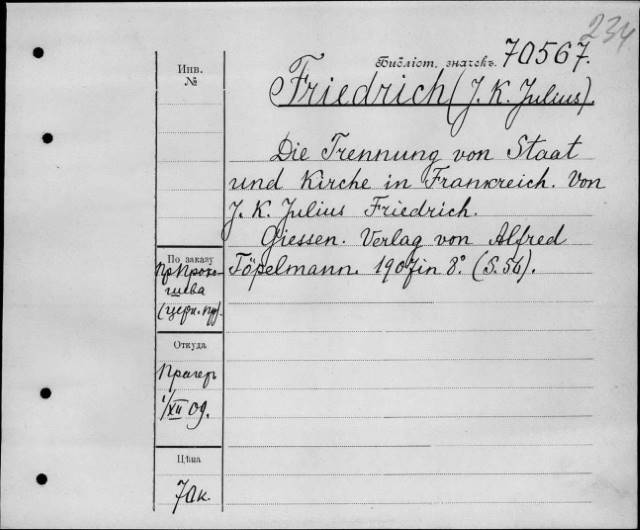 234
Библіот. значекъ. 70567.
Инв.
№
Friedrich (J. K. Julius).
Die Trennung von Staat
und Kirche in Frankreich. Von
J. K. Julius Friedrich.
Giessen. Verlag von Alfred
Töpelmann. 1907 in 8º. (S. 56).
По заказу
Пр. Проко-
шева
(церк. пр).
Откуда
Прагеръ
1/XII 09.
Цѣна
70к.